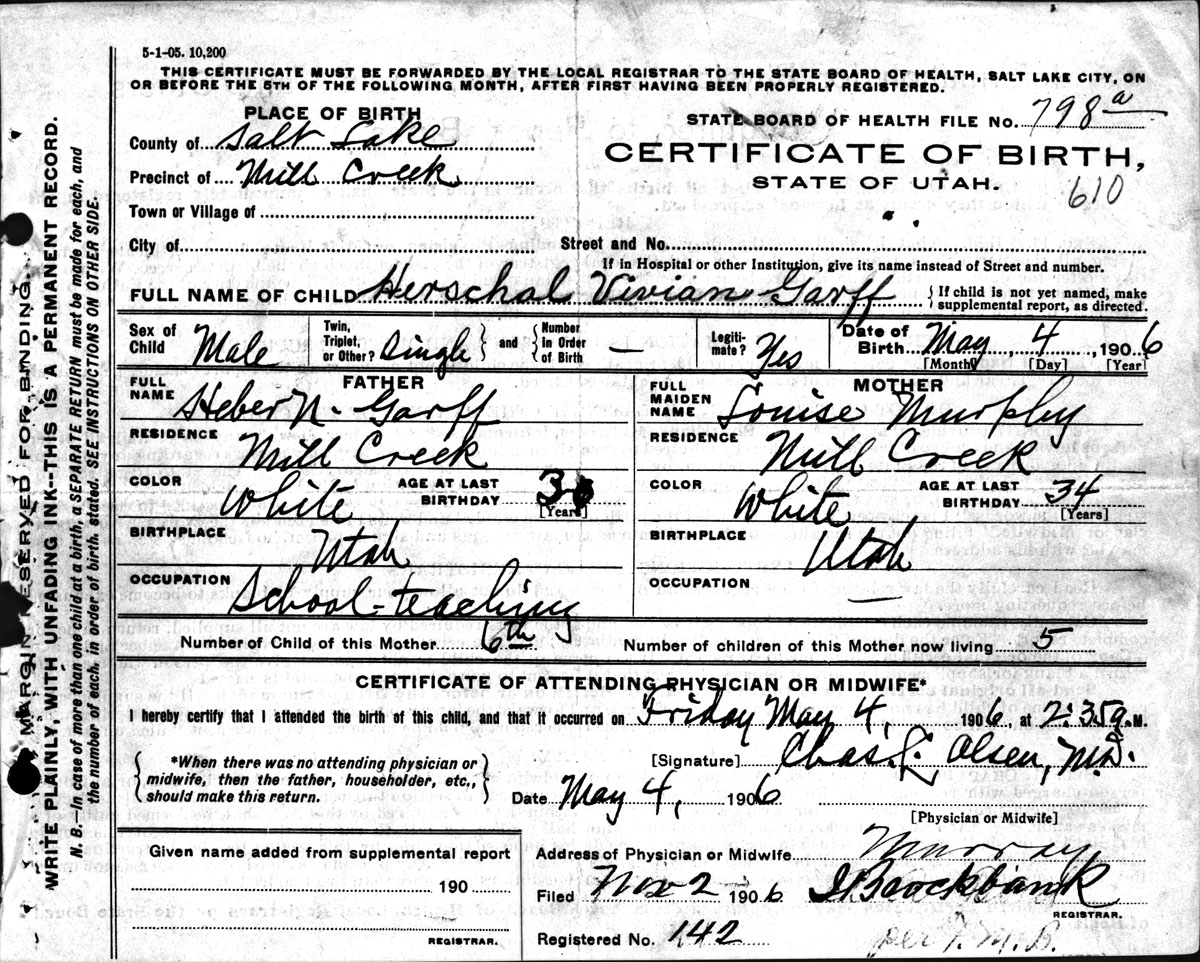 5-1-05. 10,200
THIS CERTIFICATE MUST BE FORWARDED BY THE LOCAL REGISTRAR TO THE STATE BOARD OF HEALTH, SALT LAKE CITY, ON
OR BEFORE THE 5TH OF THE FOLLOWING MONTH, AFTER FIRST HAVING BEEN PROPERLY REGISTERED.
PLACE OF BIRTH
STATE BOARD OF HEALTH FILE NO. 798a
County of Salt Lake
CERTIFICATE OF BIRTH,
Precinct of Mill Creek
STATE OF UTAH.
610
Town or Village of
City of Street and No.
If in Hospital or other Institution, give its name instead of Street and number.
FULL NAME OF CHILD Herschal Vivian Garff { If child is not yet named, make supplemental report, as directed.
Sex of Child Male Twin, Triplet, or Other? Single } and { Number in Order of Birth — Legitimate? Yes Date of Birth May, 4, 1906
[Month] [Day] [Year]
FATHER
FULL NAME Heber N. Garff
RESIDENCE Mill Creek
COLOR White AGE AT LAST BIRTHDAY
[Years]
BIRTHPLACE Utah
OCCUPATION School-teaching
MOTHER
FULL MAIDEN NAME Louise Murphy
RESIDENCE Mill Creek
COLOR White AGE AT LAST BIRTHDAY 34
[Years]
BIRTHPLACE Utah
OCCUPATION —
Number of Child of this Mother 6th Number of children of this Mother now living 5
CERTIFICATE OF ATTENDING PHYSICIAN OR MIDWIFE*
I hereby certify that I attended the birth of this child, and that it occurred on Friday May 4, 1906, at 2:35 a. M.
*When there was no attending physician or
midwife, then the father, householder, etc.,
should make this return.
[Signature] Chas. L. Olsen, M.D.
Date May 4, 1906
[Physician or Midwife]
Given name added from supplemental report
190
REGISTRAR.
Address of Physician or Midwife Murray
Filed Nov 2 1906 Brockbank
REGISTRAR.
Registered No. 142 per M. B.
MARGIN RESERVED FOR BINDING.
WRITE PLAINLY, WITH UNFADING INK--THIS IS A PERMANENT RECORD.
N. B.—In case of more than one child at a birth, a SEPARATE RETURN must be made for each, and
the number of each, in order of birth, stated. SEE INSTRUCTIONS ON OTHER SIDE.